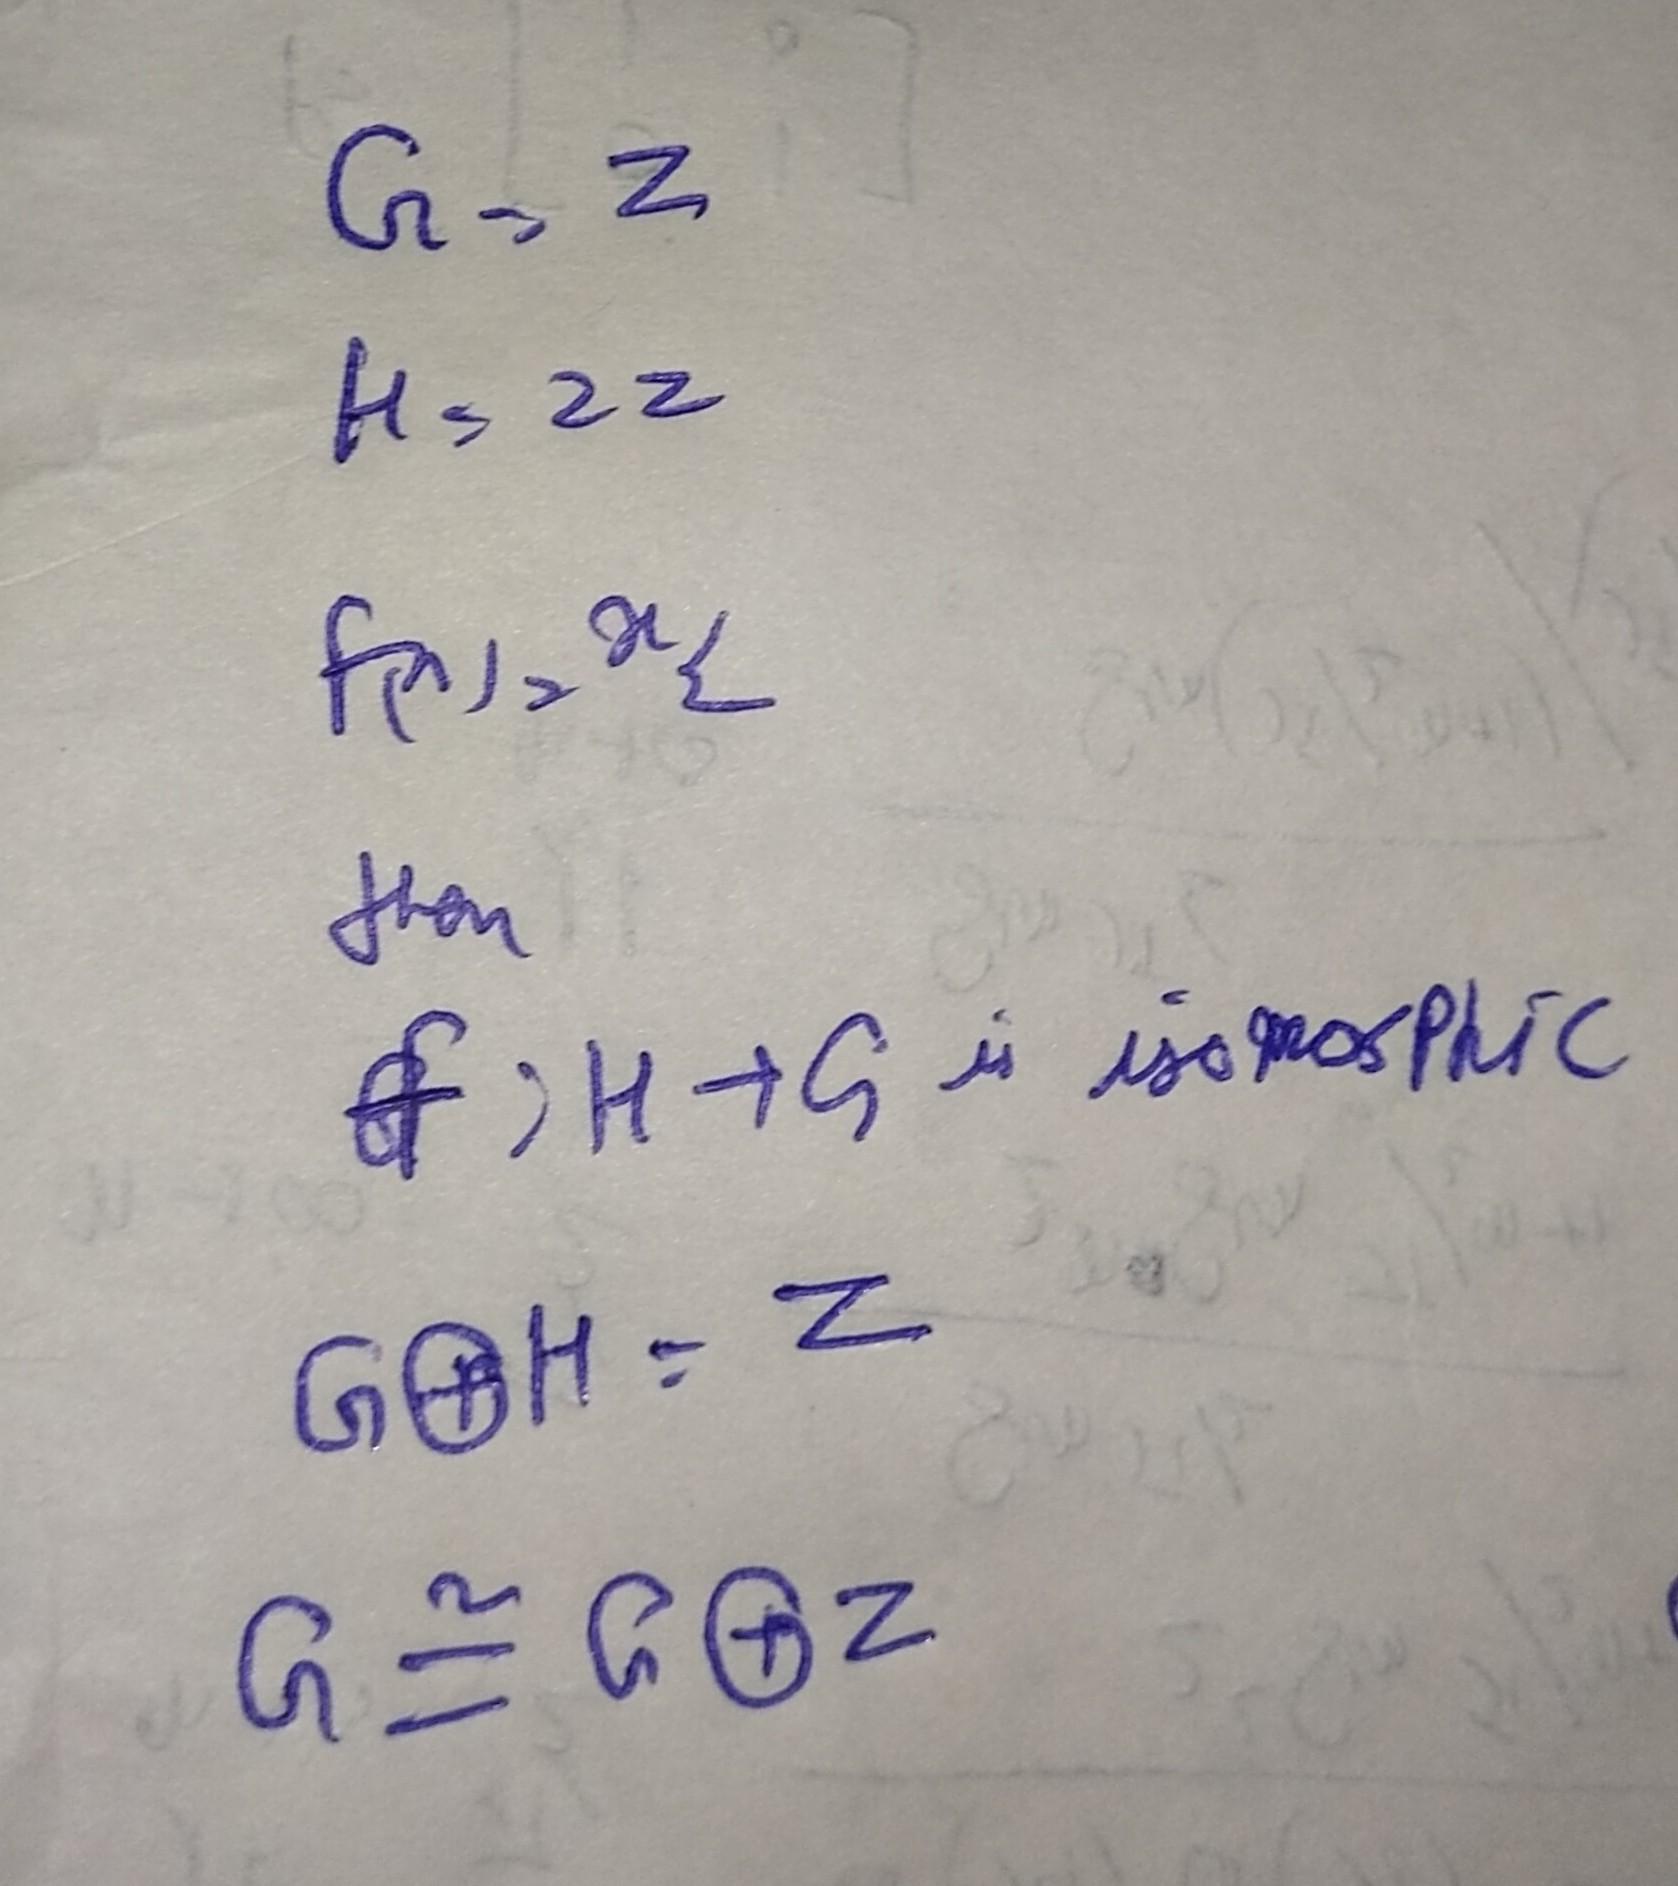 G = Z
H = 2Z
f(x) = x/2
then
f : H → G is isomorphic
G ⊕ H = Z
G ≅ G ⊕ Z